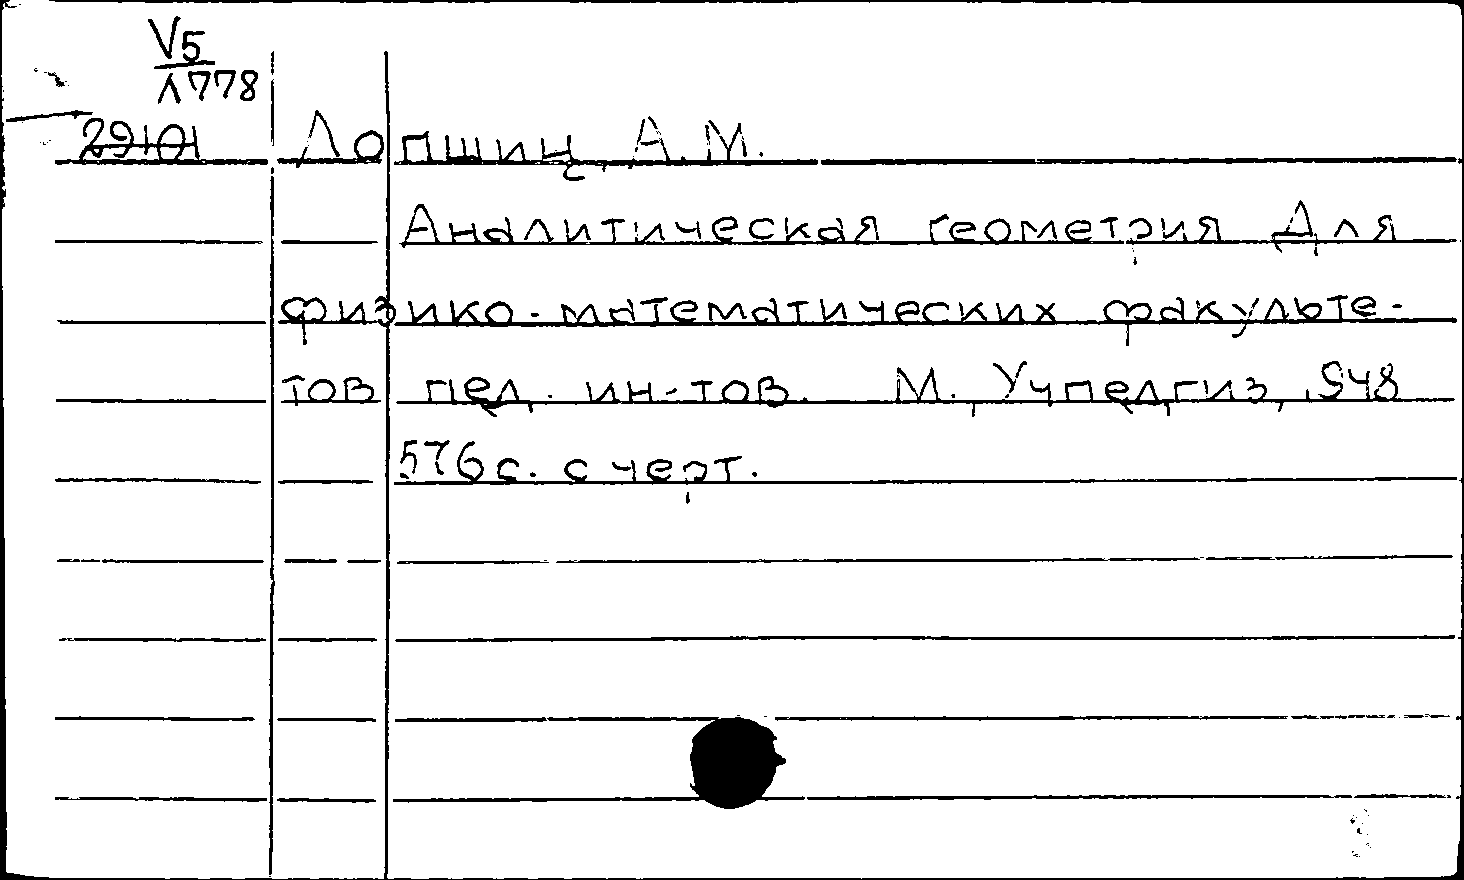 V5
Л778
29101
Лопшиц, А.М.
Аналитическая геометрия Для
физико-математических факульте-
тов пед. ин-тов. М., Учпедгиз, 1948
576 с. с черт.